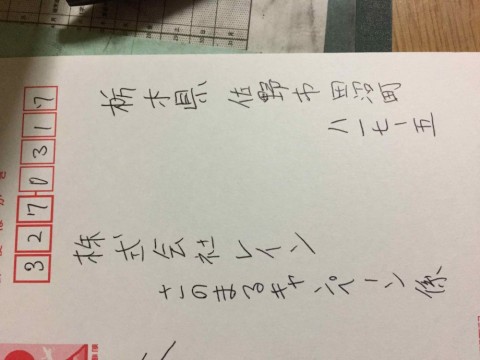 3270317
栃木県佐野市田沼町
八一七ー五
株式会社レイン
さのまるキャンペーン係